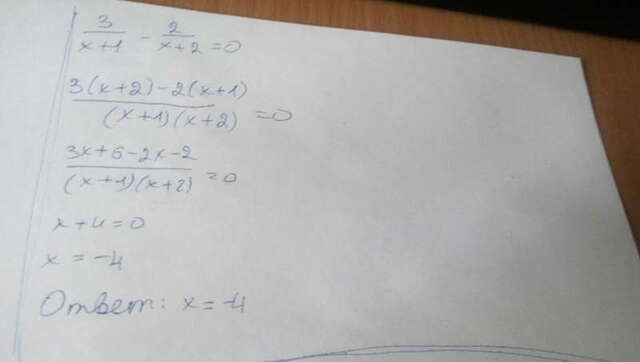 3/(x+1) - 2/(x+2) = 0
(3(x+2)-2(x+1))/((x+1)(x+2)) = 0
(3x+6-2x-2)/((x+1)(x+2)) = 0
x+4=0
x = -4
Ответ: x = -4